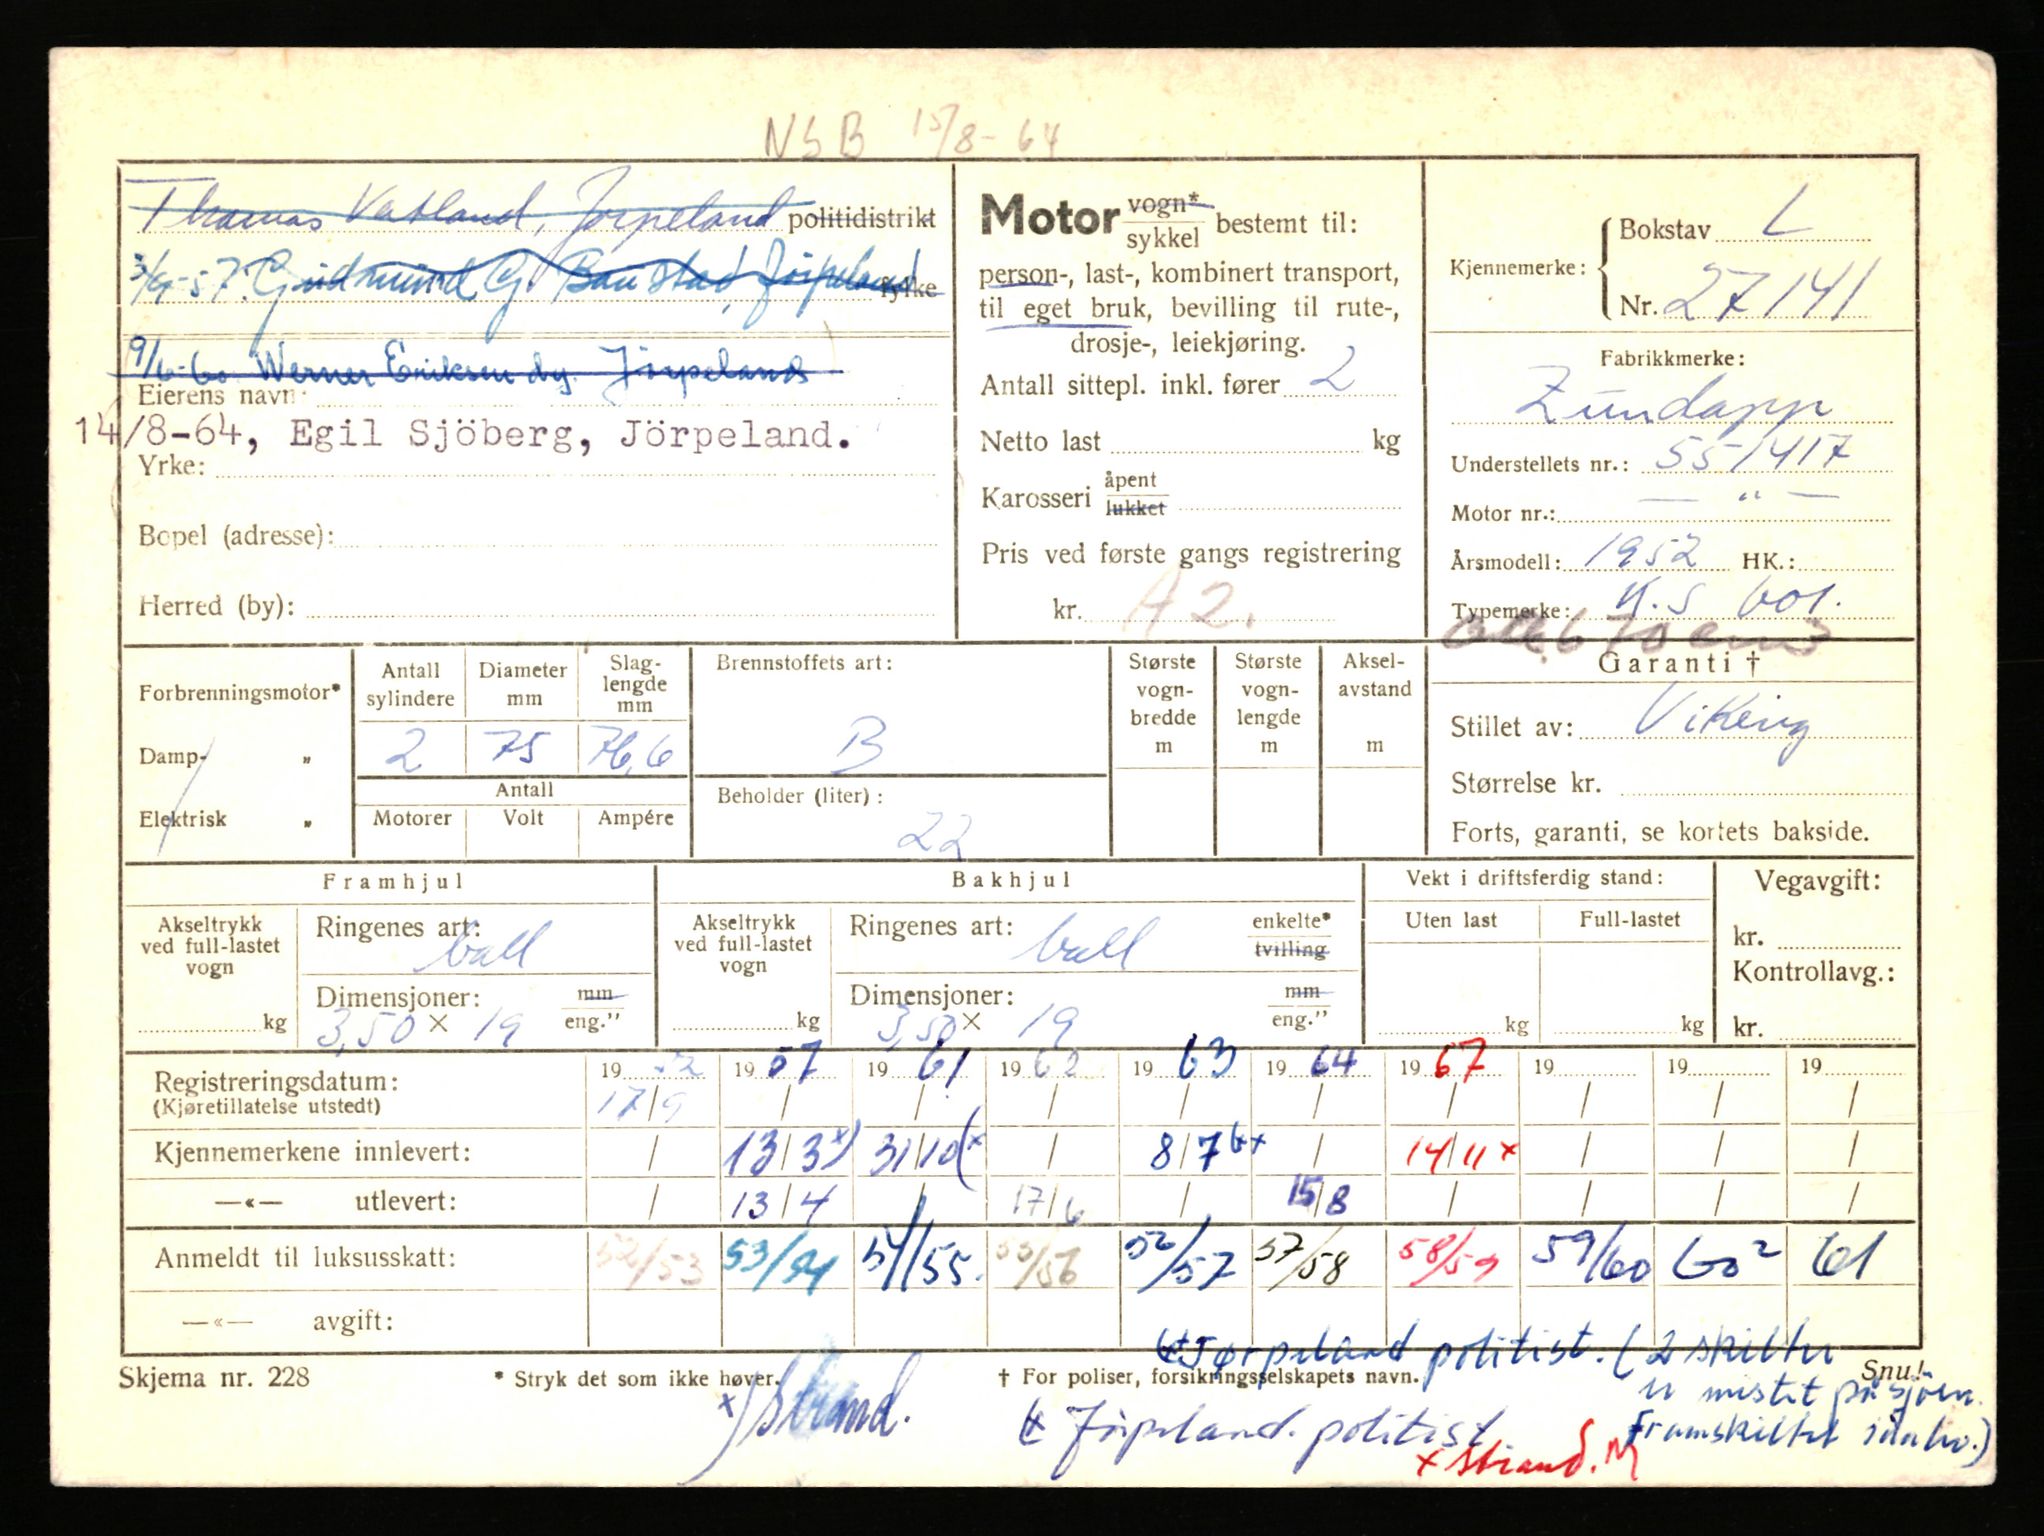 NSB 15/8-64
Thomas Vatland, Jørpeland politidistrikt
3/9-57. Gudmund G. Baustad, Jørpeland fylke
9/6-60 Werner Eriksen dy. Jørpeland
Eierens navn:
14/8-64, Egil Sjöberg, Jörpeland.
Yrke:
Bopel (adresse):
Herred (by):
Motor vogn* sykkel bestemt til:
person-, last-, kombinert transport,
til eget bruk, bevilling til rute-,
drosje-, leiekjøring.
Antall sittepl. inkl. fører 2
Netto last kg
Karosseri åpent lukket
Pris ved første gangs registrering
kr. A2.
Kjennemerke: Bokstav L
Nr. 27141
Fabrikkmerke:
Zündapp
Understellets nr.: 551417
Motor nr.: — " —
Årsmodell: 1952 HK.:
Typemerke: K.S 601.
670 cm3
Forbrenningsmotor*
Damp- "
Elektrisk "
Antall sylindere Diameter mm Slaglengde mm
2 75 76,6
Antall
Motorer Volt Ampére
Brennstoffets art:
B
Beholder (liter):
22
Største vogn-bredde m
Største vogn-lengde m
Aksel-avstand m
Garanti †
Stillet av: Viking
Størrelse kr.
Forts, garanti, se kortets bakside.
Framhjul
Akseltrykk ved full-lastet vogn kg
Ringenes art: ball
Dimensjoner: mm eng."
3,50 × 19
Bakhjul
Akseltrykk ved full-lastet vogn kg
Ringenes art: ball enkelte* tvilling
Dimensjoner: mm eng."
3,50 × 19
Vekt i driftsferdig stand:
Uten last Full-lastet
kg kg
Vegavgift:
kr.
Kontrollavg.:
kr.
Registreringsdatum: 1952 1957 1961 1962 1963 1964 1967 19 19 19
(Kjøretillatelse utstedt) 17/9 / / / / / / / / /
Kjennemerkene innlevert: / 13/3 x) 31/10 (x / 8/7 x / 14/11 x / / /
—«— utlevert: / 13/4 / 17/6 / 15/8 / / / /
Anmeldt til luksusskatt: 52/53 53/54 54/55. 55/56 56/57 57/58 58/59 59/60 60² 61
—«— avgift:
Skjema nr. 228 * Stryk det som ikke høver. † For poliser, forsikringsselskapets navn. Snu!
Jørpeland politist. (2 skilter
er mistet på sjöen.
Framskiltet
x) Strand.
Jörpeland. politist
x Strand. M